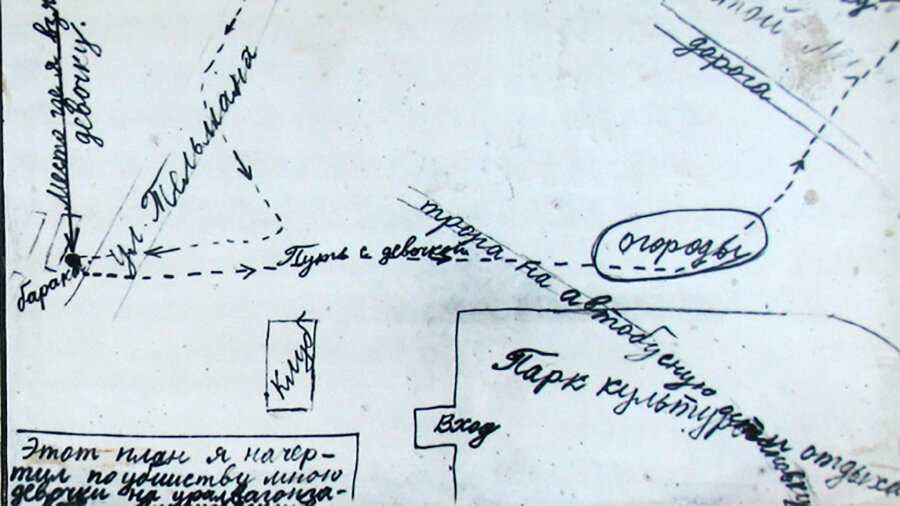 Место где я взял
девочку.
ул. Тельмана
дорога
барак
Путь с девочкой
тропа на автобусную остановку
огороды
Клуб
Вход
Парк культуры и отдыха
Этот план я начер-
тил по убийству мною
девочки на уралвагонза-